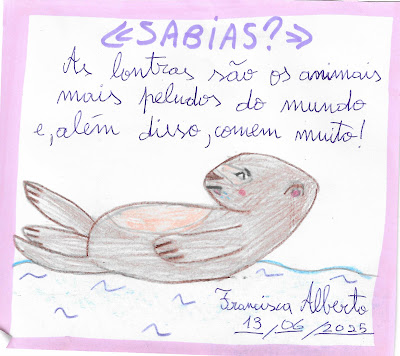 «SABIAS?»
As lontras são os animais
mais peludos do mundo
e, além disso, comem muito!
Francisca Alberto
13/06/2025